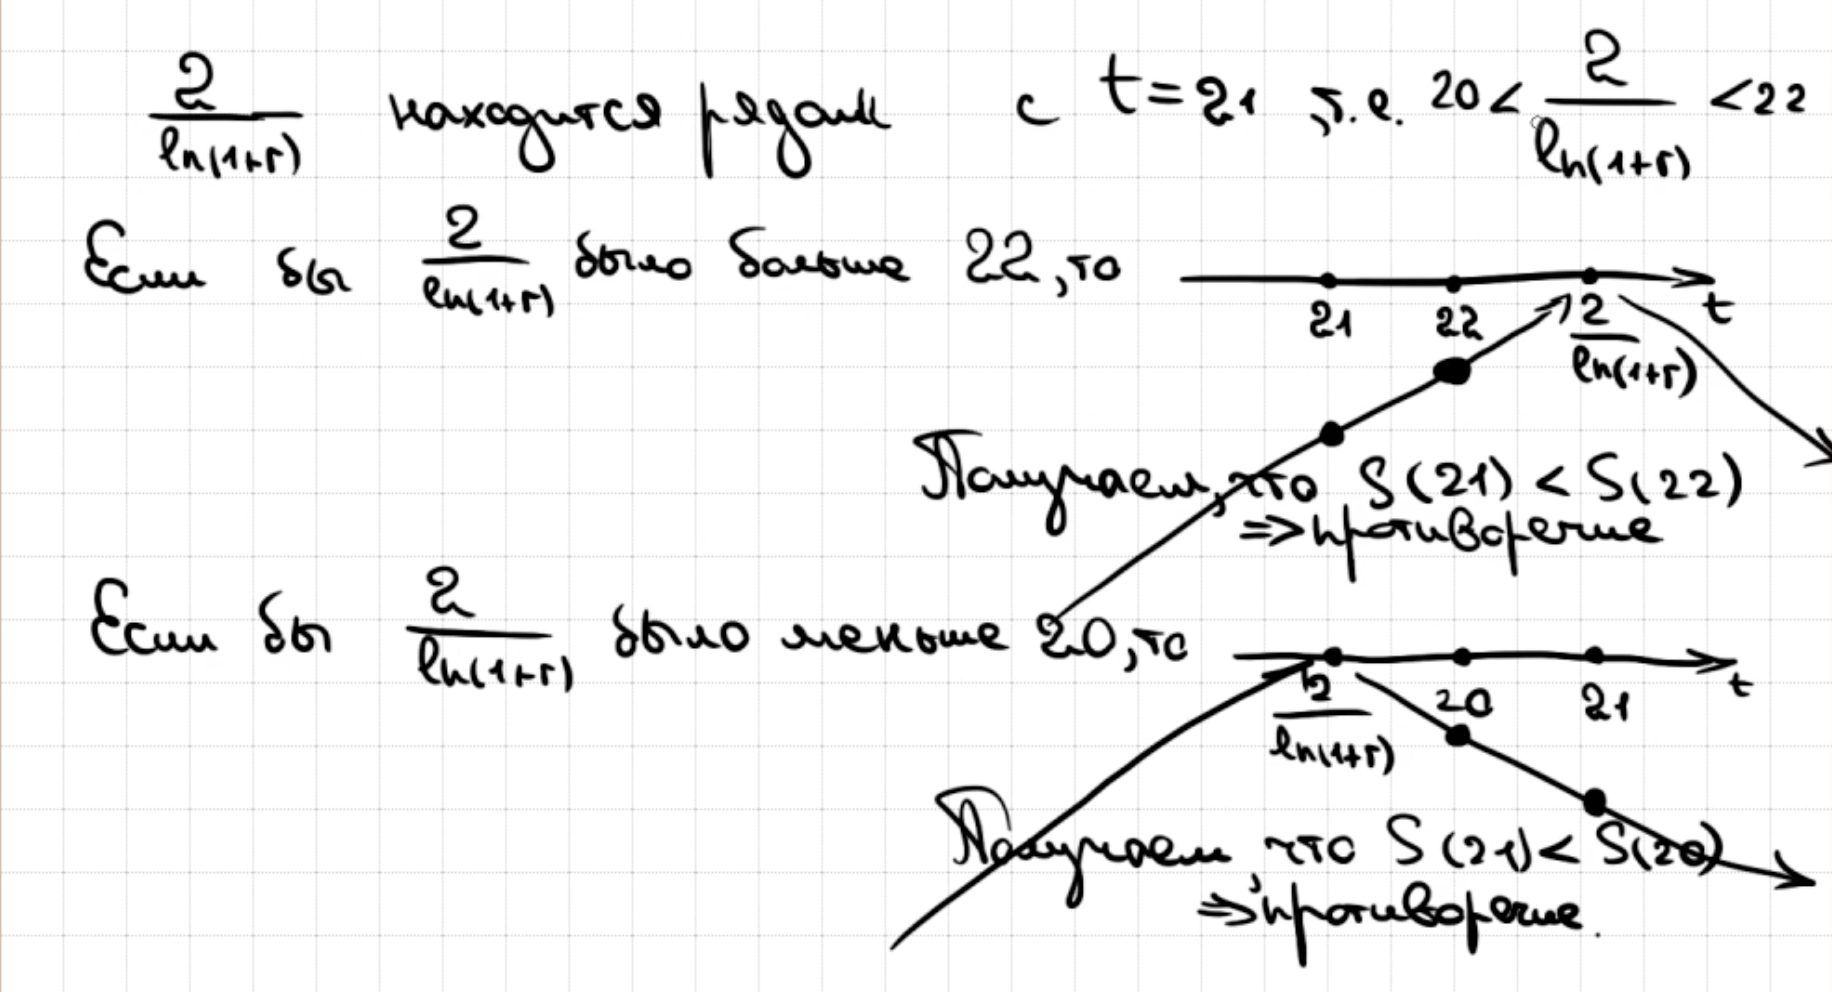 2/ln(1+r) находится рядом с t=21, т.е. 20 < 2/ln(1+r) < 22
Если бы 2/ln(1+r) было больше 22, то
21 22 2/ln(1+r) t
Получаем, что S(21) < S(22)
=> противоречие
Если бы 2/ln(1+r) было меньше 20, то
2/ln(1+r) 20 21 t
Получаем, что S(21) < S(20)
=> противоречие.